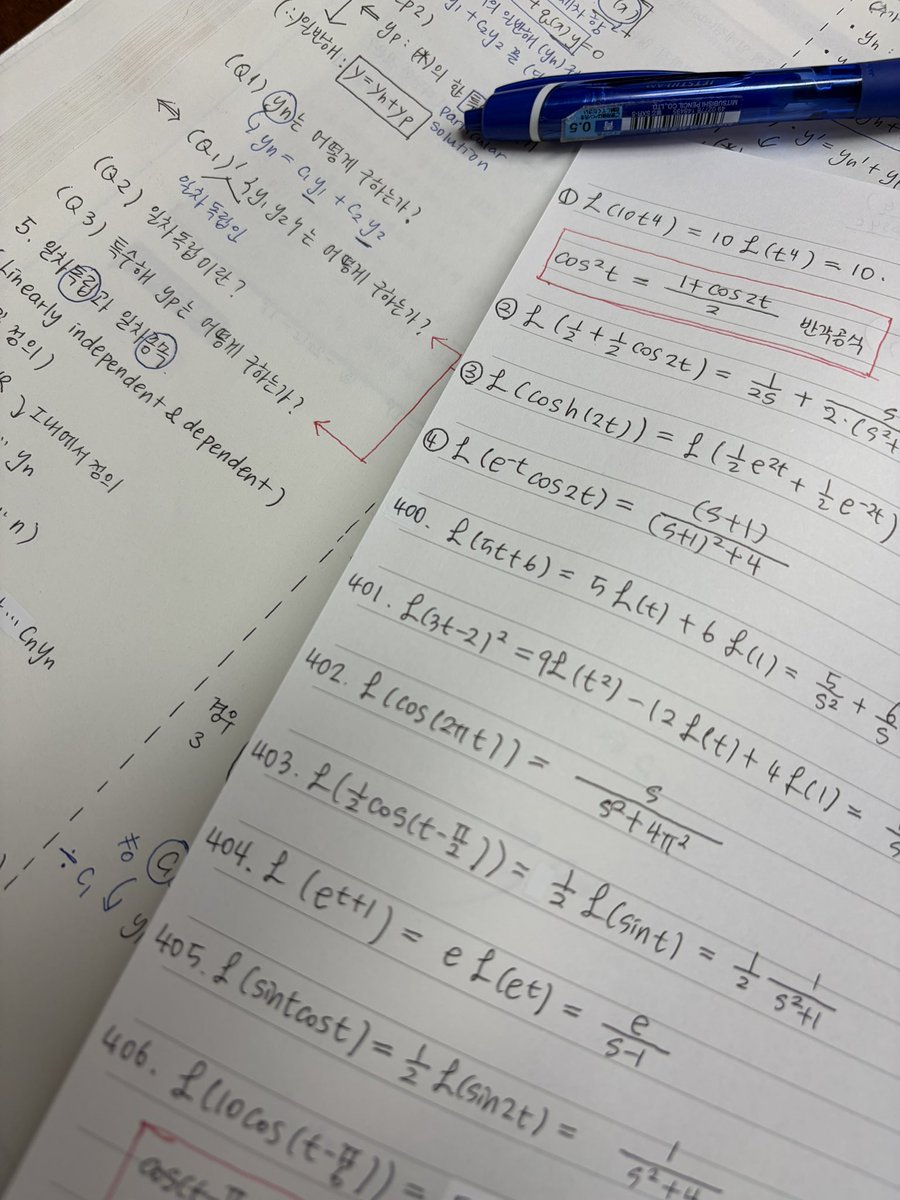 (∴) 일반해 : y = yh + yp
← yp : (*)의 한 특
particular
solution
(Q1) yh는 어떻게 구하는가?
yh = c₁y₁ + c₂y₂
⇔ (Q1)' {y₁, y₂}는 어떻게 구하는가?
일차독립인
(Q2) 일차독립이란?
(Q3) 특수해 yp는 어떻게 구하는가?
5. 일차독립과 일차종속
(Linearly independent & dependent)
정의)
} I 내에서 정의
... yn
n)
... Cnyn
경우
3
÷ C₁
0.5
MITSUBISHI PENCIL CO., LTD
y' = yh' + y
① ℒ(10t⁴) = 10ℒ(t⁴) = 10 ·
cos²t = (1 + cos2t)/2 반각공식
② ℒ(1/2 + 1/2 cos2t) = 1/2s + s/2·(s²+
③ ℒ(cosh(2t)) = ℒ(1/2 e²ᵗ + 1/2 e⁻²ᵗ)
④ ℒ(e⁻ᵗcos2t) = (s+1)/((s+1)²+4)
400. ℒ(5t+6) = 5ℒ(t) + 6ℒ(1) = 5/s² + 6/s
401. ℒ(3t-2)² = 9ℒ(t²) - 12ℒ(t) + 4ℒ(1) =
402. ℒ(cos(2πt)) = s/(s²+4π²)
403. ℒ(1/2 cos(t-π/2)) = 1/2 ℒ(sint) = 1/2 1/(s²+1)
404. ℒ(eᵗ⁺¹) = eℒ(eᵗ) = e/(s-1)
405. ℒ(sintcost) = 1/2 ℒ(sin2t) = 1/(s²+4
406. ℒ(10cos(t-π/6)) =
cos(t-π